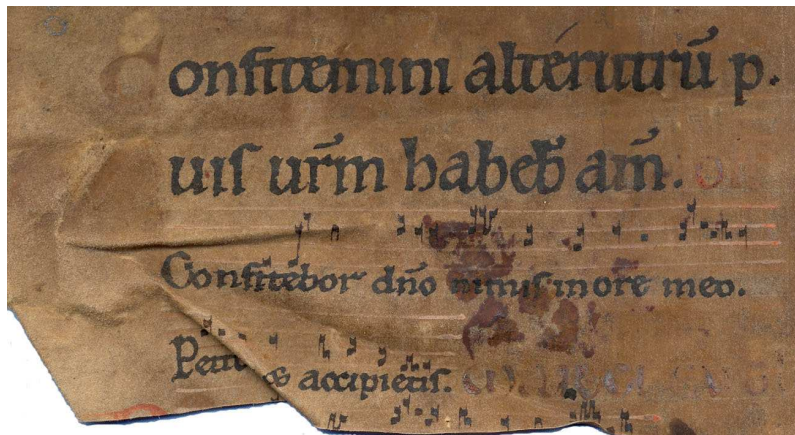 Confitemini alterutrũ p.
uis ur̃m habeb am̃.
Confitebor dño nimis in ore meo.
Petit accipietis.